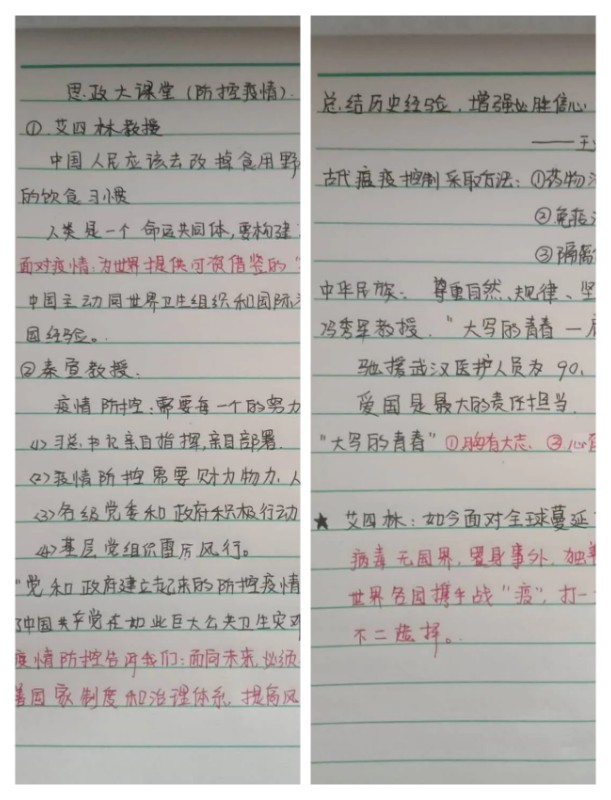 思政大课堂（防控疫情）.
①. 艾四林教授
中国人民应该去改掉食用野
的饮食习惯
人类是一个命运共同体，要构建
面对疫情，为世界提供可资借鉴的“
中国主动同世界卫生组织和国际
国经验。.
②秦宣教授.
疫情防控：需要每一个的努力
(1)习总书记亲自指挥，亲自部署.
(2)疫情防控需要财力物力、人
(3)各级党委和政府积极行动
(4)基层党组织雷厉风行。
“党和政府建立起来的防控疫情
了中国共产党在如此巨大公共卫生灾难
疫情防控告诉我们：面向未来，必须
善国家制度和治理体系，提高风
总结历史经验，增强必胜信心.
——王
古代瘟疫控制采取方法：①药物
②免疫
③隔离
中华民族：尊重自然、规律、坚
冯秀军教授.“大写的青春一
驰援武汉医护人员为90.
爱国是最大的责任担当.
“大写的青春”①胸有大志.③心
★ 艾四林：如今面对全球蔓延
病毒无国界，置身事外，独
世界各国携手战“疫”，打一
不二选择。.